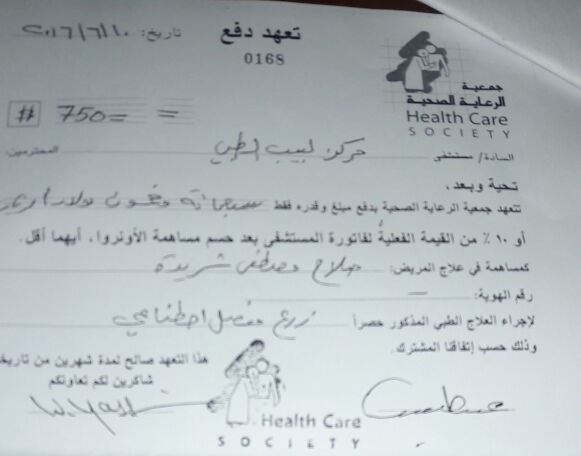 تعهد دفع
تاريخ: ٢٠١٦/٦/١٠
0168
جمعية
الرعاية الصحية
Health Care
SOCIETY
# 750= =
السادة/ مستشفى مركز لبيب الطبي المحترمين:
تحية وبعد،
تتعهد جمعية الرعاية الصحية بدفع مبلغ وقدره فقط سبعمائة وخمسون دولار
أو ١٠ ٪ من القيمة الفعلية لفاتورة المستشفى بعد حسم مساهمة الأونروا، أيهما أقل.
كمساهمة في علاج المريض: صلاح مصطفى شريدة
رقم الهوية: –
لإجراء العلاج الطبي المذكور حصراً زرع مفصل اصطناعي
وذلك حسب إتفاقنا المشترك.
هذا التعهد صالح لمدة شهرين من تاريخه
شاكرين لكم تعاونكم
Health Care
SOCIETY